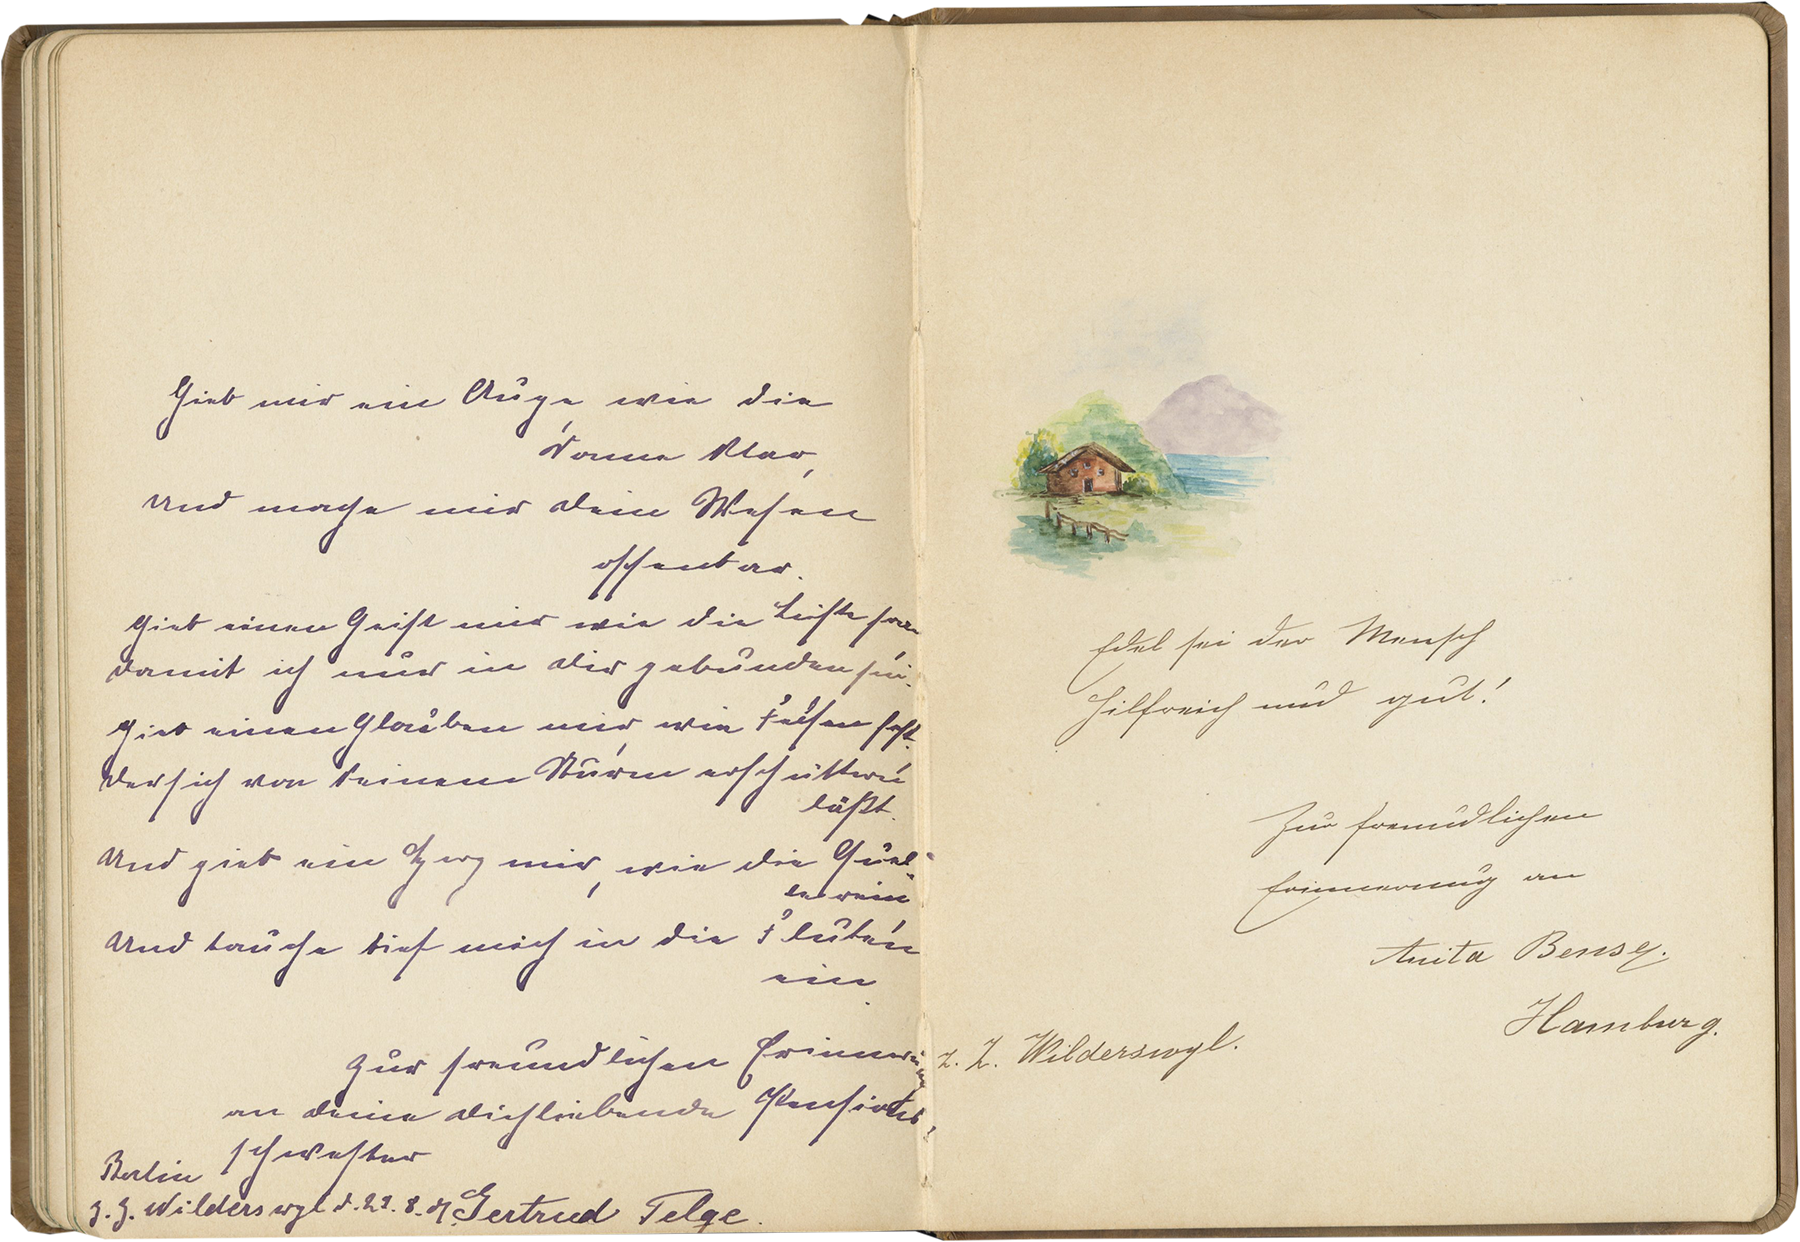 Gieb mir ein Auge, wie die
Sonne klar,
Und mache mir dein Wesen
offenbar.
Gieb einen Geist mir wie die Lüfte frei
Damit ich nur in dir gebunden sei.
Gieb einen Glauben mir wie Felsen fest.
Der sich von keinem Sturm erschüttern
läßt.
Und gieb ein Herz mir, wie die Quel-
le rein
Und tauche tief mich in die Fluten
ein.
Zur freundlichen Erinnerung
an deine dichliebende Pensions-
schwester
Berlin
z. Z. Wilderswyl d. 22. 8. Gertrud Telge.
Edel sei der Mensch
Hilfreich und gut!
Zur freundlichen
Erinnerung an
Anita Bense.
Hamburg.
z. Z. Wilderswyl.